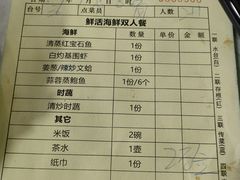 台号 点菜员 人数
鲜活海鲜双人餐
海鲜 数量 单价 金额
清蒸红宝石鱼 1份
白灼基围虾 1份
姜葱/辣炒文蛤 1份
蒜蓉蒸鲍鱼 1份/6个
时蔬
清炒时蔬 1份
其它
米饭 2碗
茶水 1壶
纸巾 1份